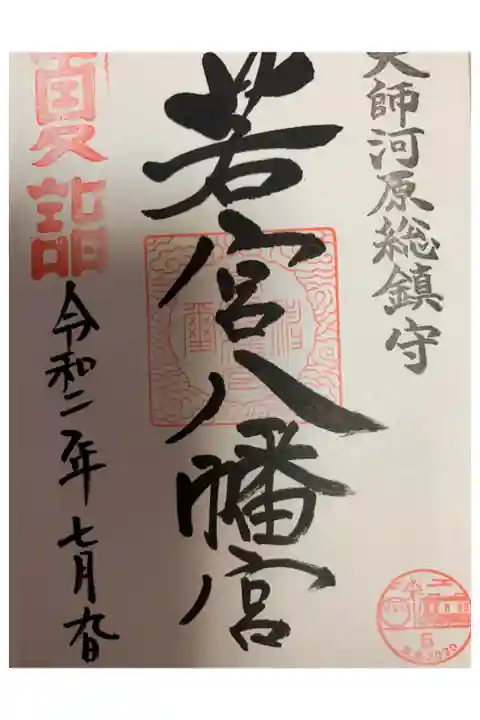 大師河原総鎮守
若宮八幡宮
夏詣
令和二年七月九日